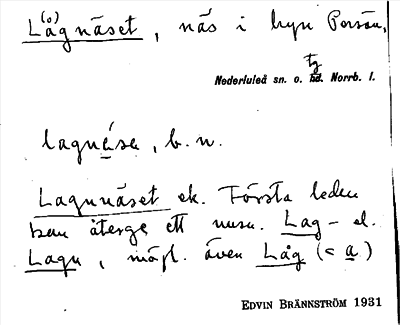 L(o)agnäset, näs i byn Persön,
tg
Nederluleå sn. o. hd. Norrb. l.
lagnése, b. n.
Lagnnäset ek. Första leden
kan återge ett nusv. Lag- el.
Lagn, möjl. även Låg (< a)
EDVIN BRÄNNSTRÖM 1931